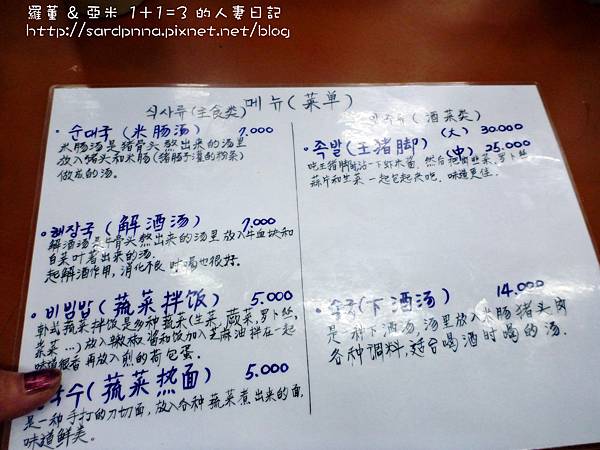 羅董 & 亞米 1+1=3 的人妻日記
http://sardpnna.pixnet.net/blog
메뉴(菜单)
식사류(主食类)
·순대국(米肠汤) 7.000
米肠汤是猪骨头熬出来的汤里
放入猪头和米肠(猪肠子灌的粉菜)
做成的汤。
·해장국(解酒汤) 7.000
解酒汤是牛骨头熬出来的汤里放入牛血块和
白菜叶煮出来的汤。
起解酒作用,消化不良时喝也很好。
·비빔밥(蔬菜拌饭) 5.000
韩式蔬菜拌饭是多种蔬菜(生菜,蕨菜,萝卜丝,
菜...)放入辣椒酱和饭加芝麻油拌在一起
味道很香再放入煎的荷包蛋.
수(蔬菜热面) 5.000
是一种手打的刀切面,放入各种蔬菜煮出来的面,
味道鲜美。
(酒菜类)
·족발(王猪脚) (大) 30.000
(中) 25.000
吃王猪脚时沾一下虾米酱,然后把韭菜,萝卜丝
蒜片和生菜一起包起来吃.味道更佳.
(下酒汤) 14.000
是一种下酒汤,汤里放入米肠猪头肉
各种调料,适合喝酒时喝的汤.